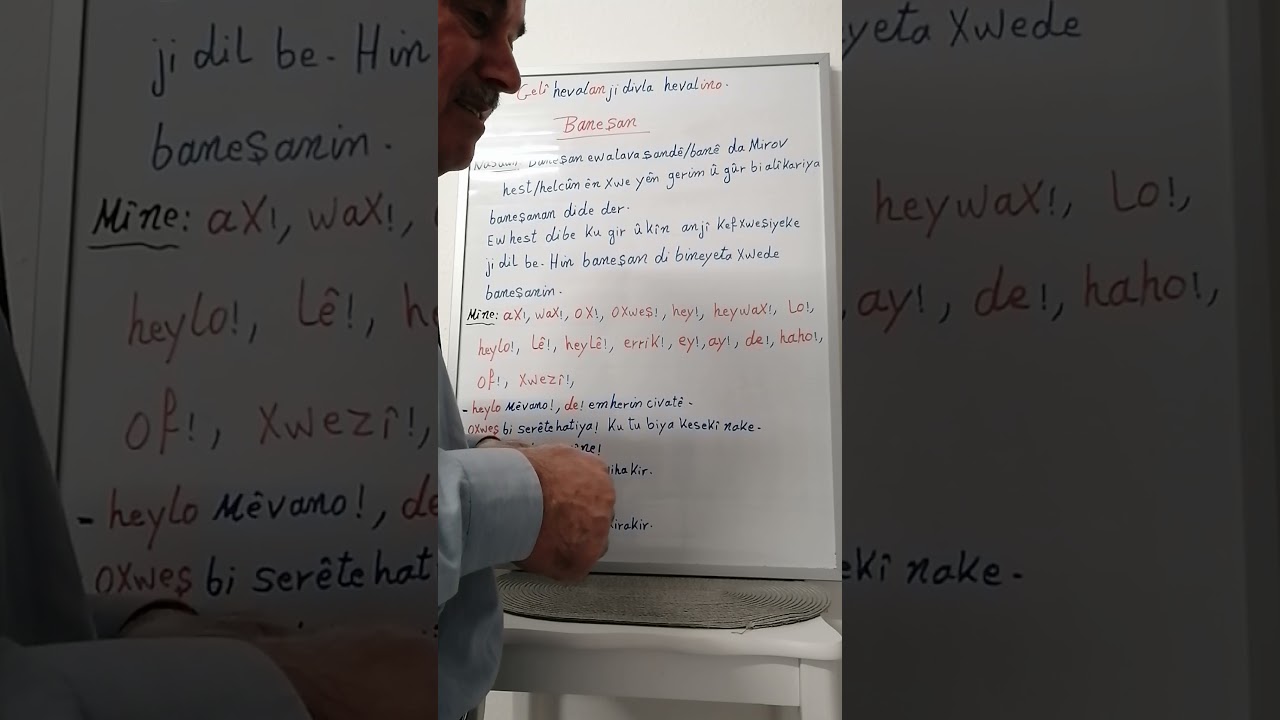 Gelî hevalan ji divla hevalino.
Baneşan
baneşan ew alava şandê/banê da Mirov
hest/helcûn ên xwe yên gerim û gûr bi alîkariya
baneşanan dide der.
Ew hest dibe ku gir û kîn anjî kefxweşiyeke
ji dil be. Hin baneşan di bineyeta xwede
baneşanin.
Mîne: ax!, wax!, ox!, oxweş!, hey!, heywax!, Lo!,
heylo!, Lê!, heylê!, errik!, ey!, ay!, de!, haho!,
of!, xwezî!,
- heylo Mêvano!, de! em herin civatê.
oxweş bi serêtehatiya! Ku tu biya kesekî nake.